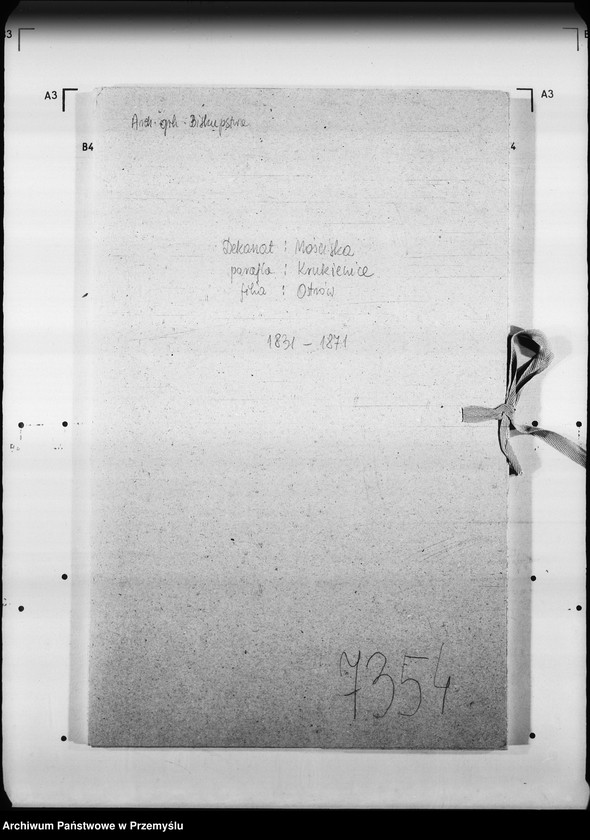 A3
A3
B4
4
Arch. grk. Biskupstwa
Dekanat : Mościska
parafia : Krukienice
filia : Ostrów
1831 - 1871
7354
Archiwum Państwowe w Przemyślu